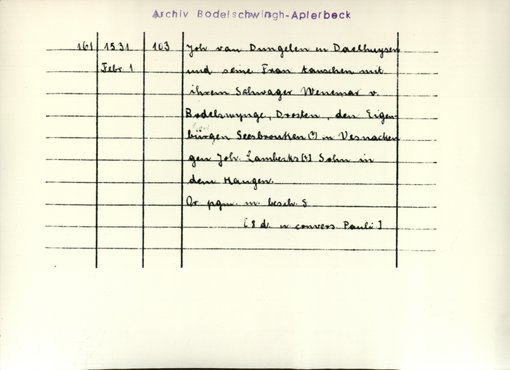 Archiv Bodelschwingh-Aplerbeck
161 1531 103 Joh. van Dungelen in Daelhuysen
Febr. 1 und seine Frau tauschen mit
ihrem Schwager Wennemar v.
Bodelswynge, Drosten, den Eigen-
bürgen Seesbrouken (?) in Vesnacken
gen Joh. Lamberts (?) Sohn in
dem Haugen.
Or. pgm. m. besch. S.
[8 d. v convers. Pauli]